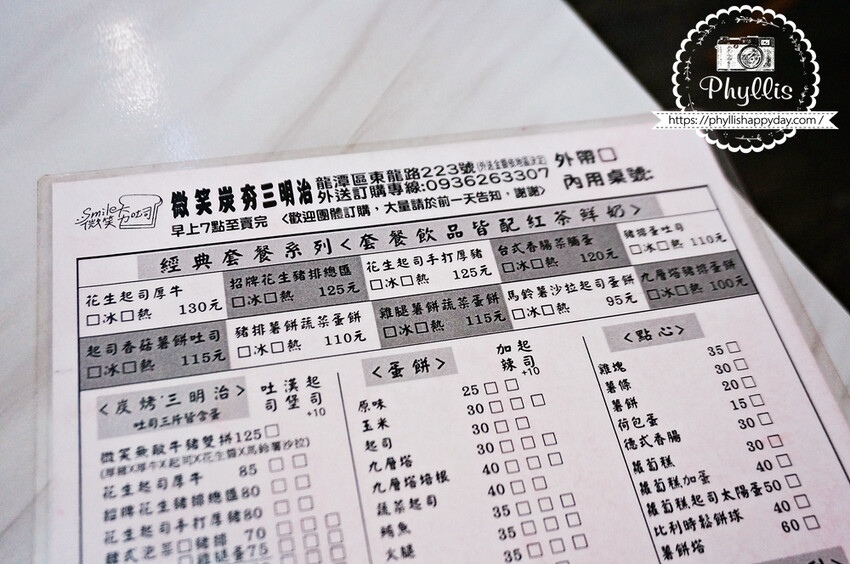 Phyllis
https://phyllishappyday.com/
Smile
微笑 夯吐司
微笑炭夯三明治
早上7點至賣完
龍潭區東龍路223號(外送金額依地區決定)
外送訂購專線:0936263307
<歡迎團體訂購，大量請於前一天告知，謝謝>
外帶□
內用桌號:
經典套餐系列<套餐飲品皆配紅茶鮮奶>
花生起司厚牛
□冰□熱 130元
招牌花生豬排總匯
□冰□熱 125元
花生起司手打厚豬
□冰□熱 125元
台式香腸茶脯蛋
□冰□熱 120元
豬排蛋吐司
□冰□熱 110元
起司香菇薯餅吐司
□冰□熱 115元
豬排薯餅蔬菜蛋餅
□冰□熱 110元
雞腿薯餅蔬菜蛋餅
□冰□熱 115元
馬鈴薯沙拉起司蛋餅
□冰□熱 95元
九層塔豬排蛋餅
□冰□熱 100元
<炭烤三明治>
吐司三片皆含蛋
吐司 漢堡 起司+10
微笑無敵牛豬雙拼125□
(厚豬X厚牛X起司X花生醬X馬鈴薯沙拉)
花生起司厚牛 85 □□
招牌花生豬排總匯80 □
花生起司手打厚豬80 □□
韓式泡菜□豬排 70 □□□
□雞腿蛋75 □□□
<蛋餅>
加辣 起司+10
原味 25□□
玉米 30□□□
起司 30□□
九層塔 30□□□
九層塔培根 40□□□
蔬菜起司 40□□
鮪魚 35□□□
火腿 35□□□
<點心>
雞塊 35□
薯條 30□
薯餅 20□
荷包蛋 15□
德式香腸 30□
蘿蔔糕 30□
蘿蔔糕加蛋 40□
蘿蔔糕起司太陽蛋50□
比利時鬆餅球 40□
薯餅塔 60□